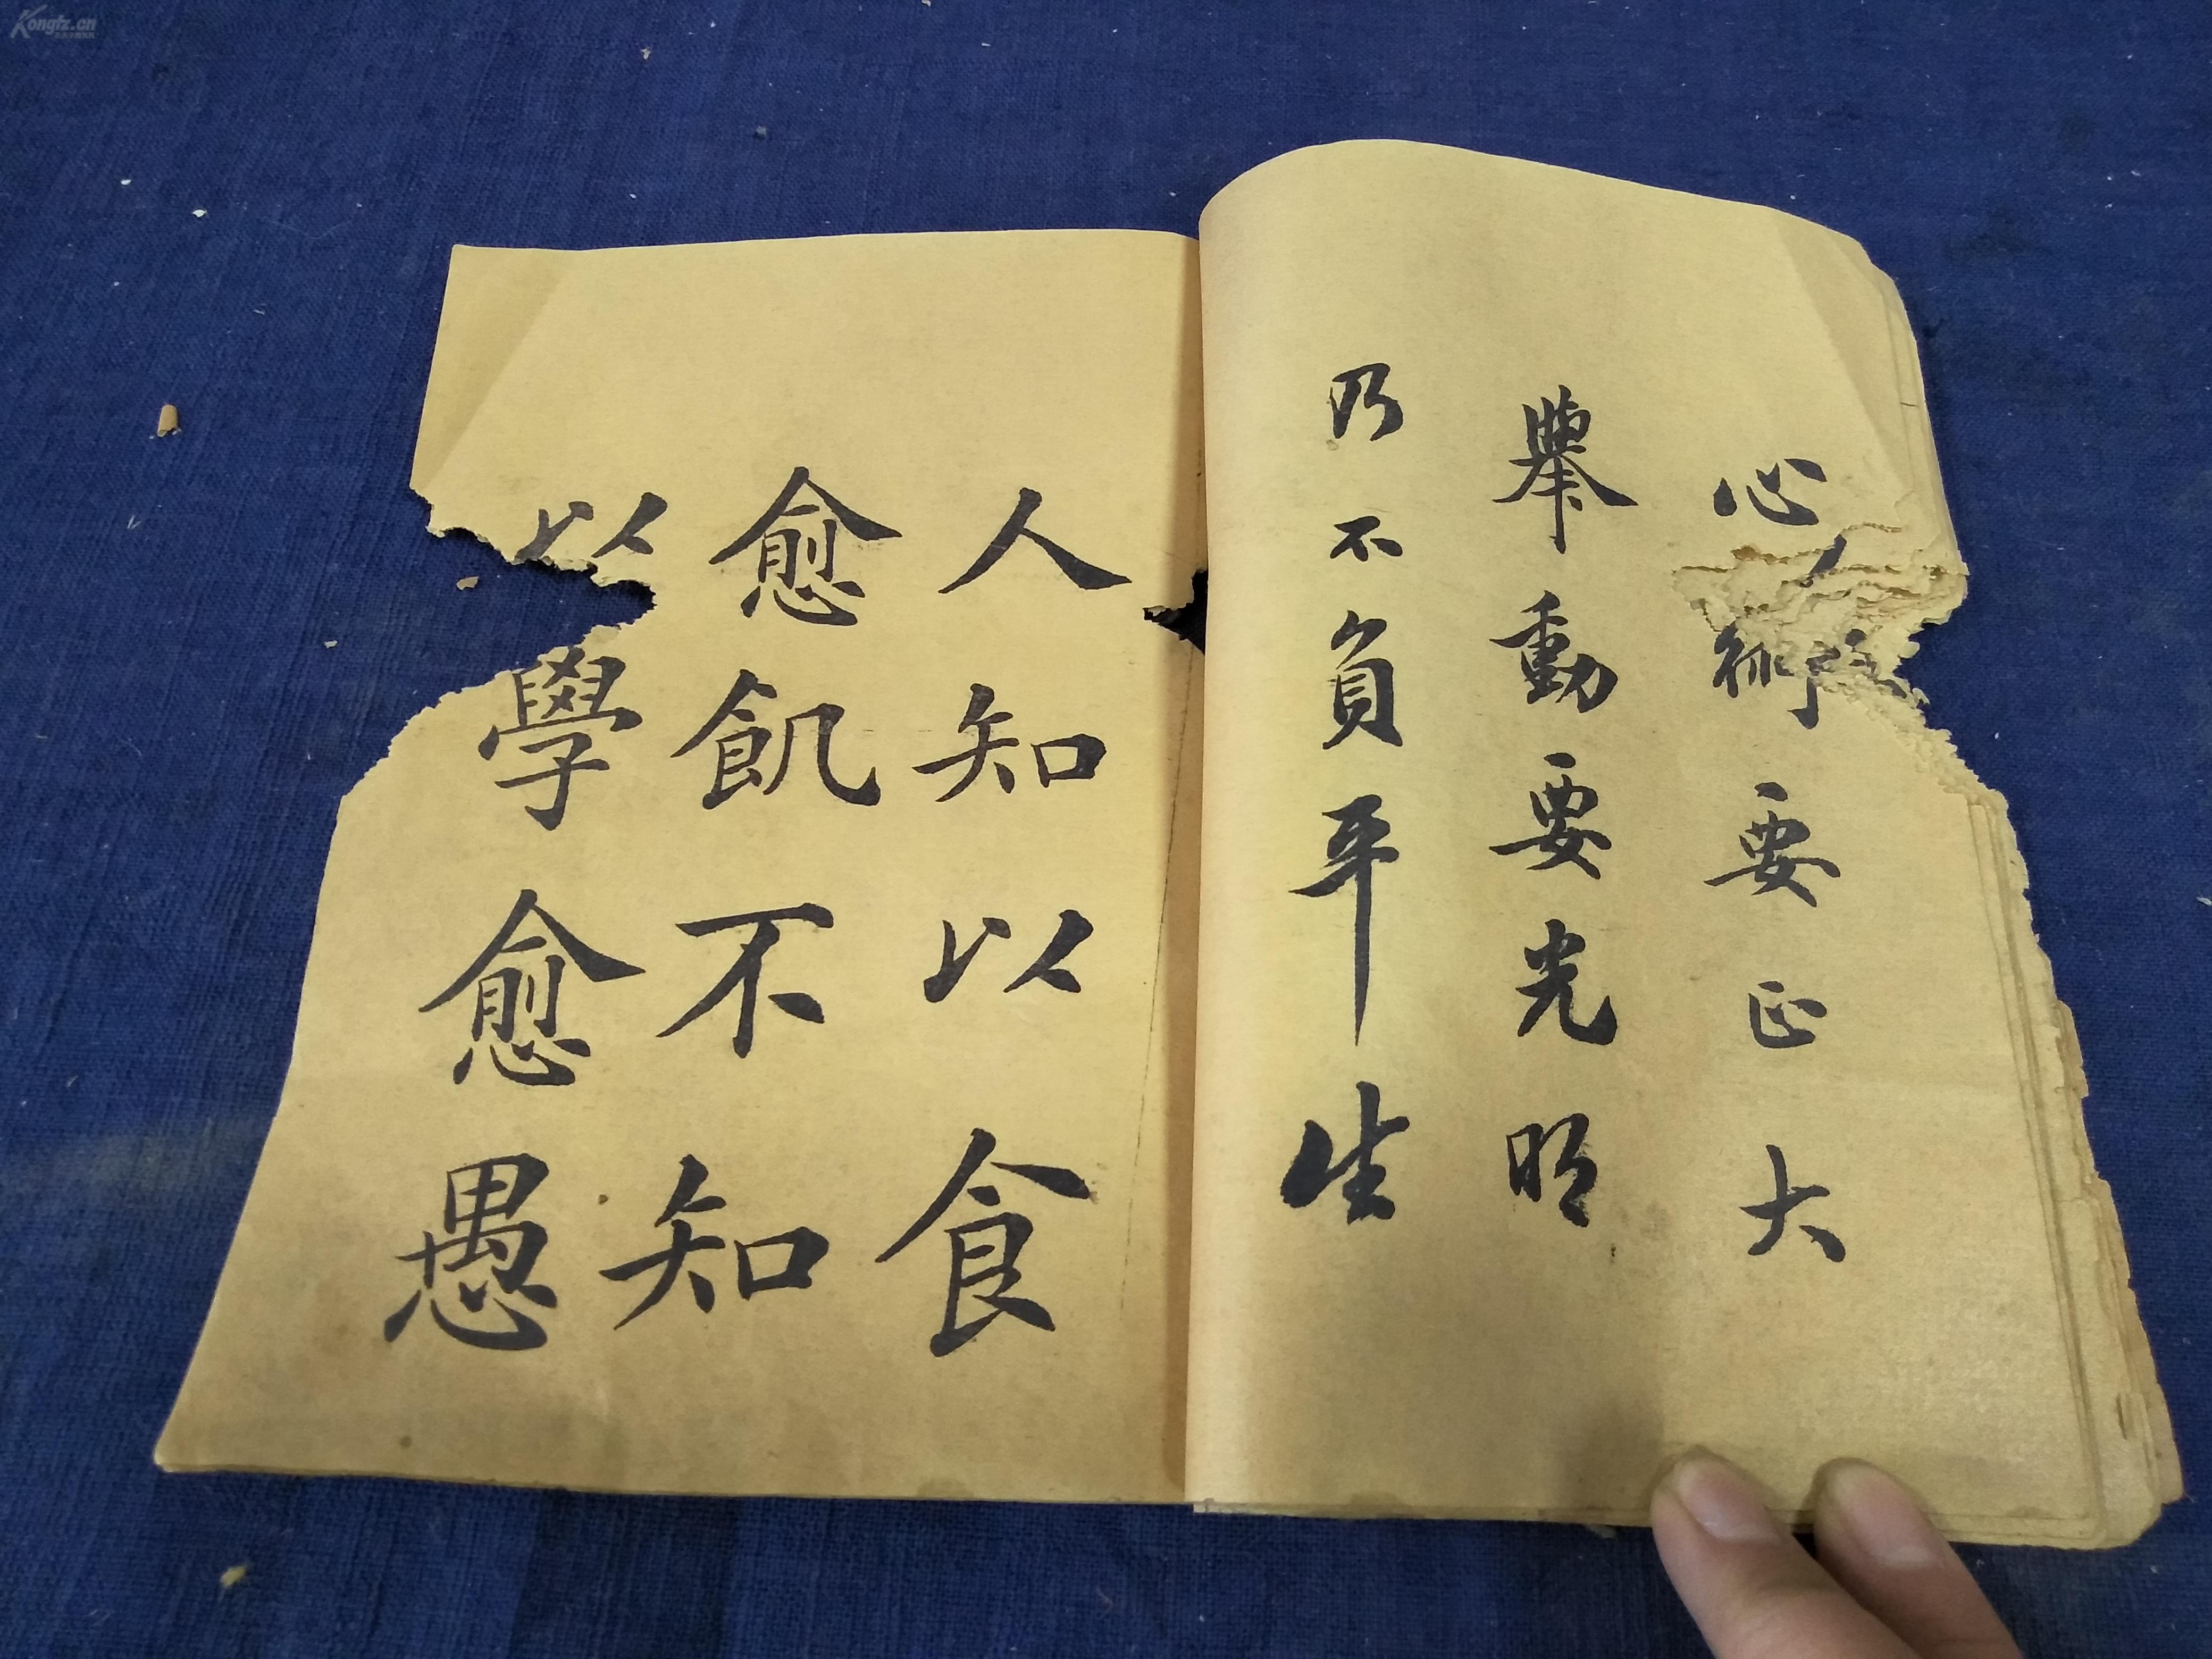 心術要正大
舉動要光明
乃不負平生
人知以食
愈飢不知
以學愈愚
Kongfz.cn